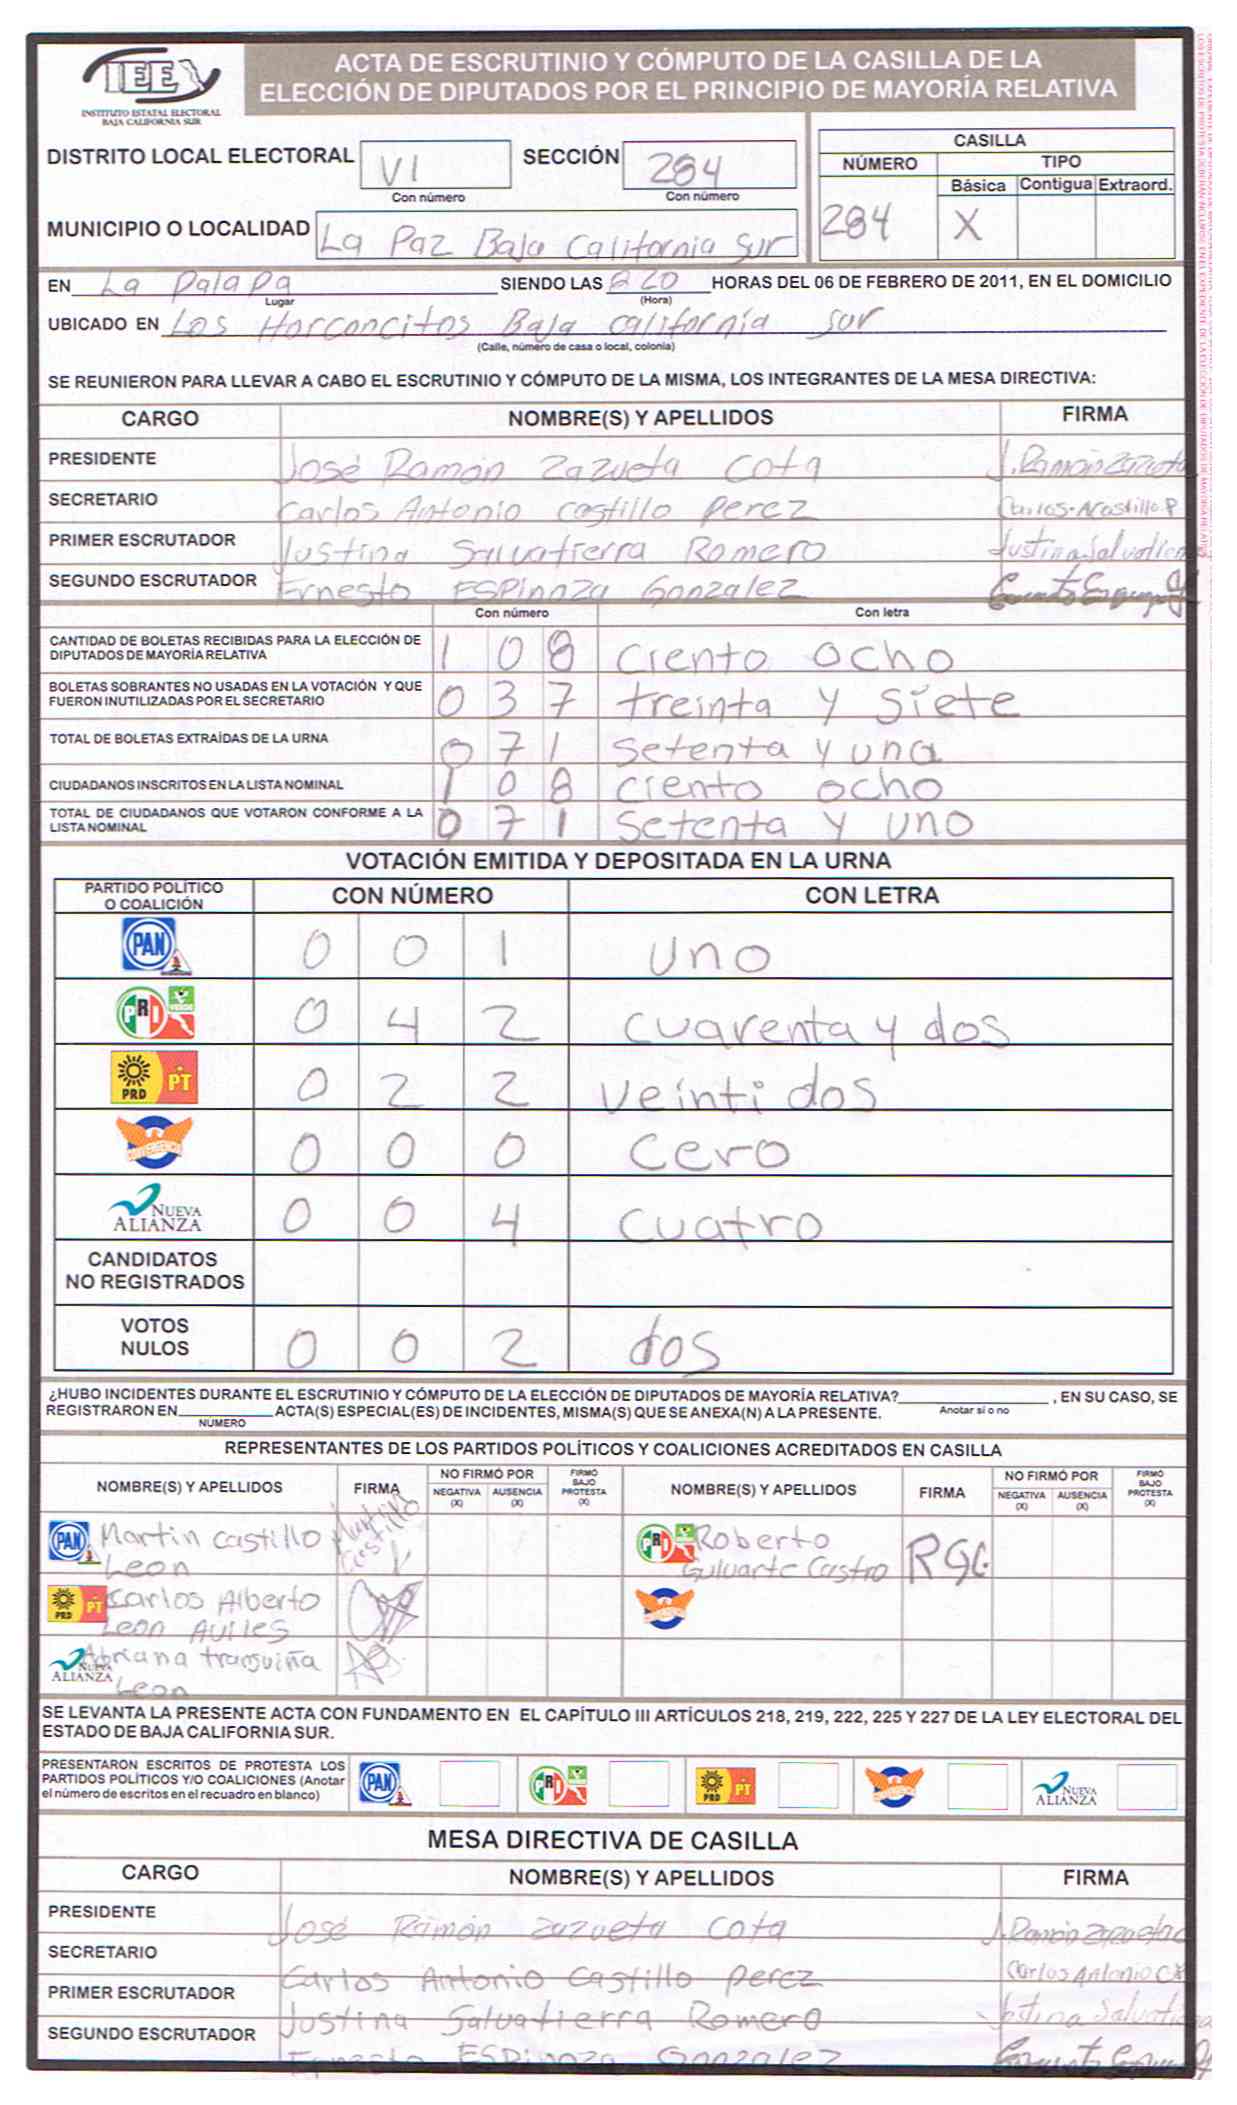 IEE
INSTITUTO ESTATAL ELECTORAL
BAJA CALIFORNIA SUR
ACTA DE ESCRUTINIO Y CÓMPUTO DE LA CASILLA DE LA
ELECCIÓN DE DIPUTADOS POR EL PRINCIPIO DE MAYORÍA RELATIVA
DISTRITO LOCAL ELECTORAL VI SECCIÓN 284
Con número Con número
MUNICIPIO O LOCALIDAD La Paz Baja California Sur
CASILLA
NÚMERO TIPO
Básica Contigua Extraord.
284 X
EN La Palapa SIENDO LAS 620 HORAS DEL 06 DE FEBRERO DE 2011, EN EL DOMICILIO
Lugar (Hora)
UBICADO EN Los Horconcitos Baja california sur
(Calle, número de casa o local, colonia)
SE REUNIERON PARA LLEVAR A CABO EL ESCRUTINIO Y CÓMPUTO DE LA MISMA, LOS INTEGRANTES DE LA MESA DIRECTIVA:
CARGO NOMBRE(S) Y APELLIDOS FIRMA
PRESIDENTE José Ramón Zazueta Cota J. Ramón Zazueta
SECRETARIO Carlos Antonio castillo Perez Carlos.Acastillo.P
PRIMER ESCRUTADOR Justina Salvatierra Romero Justina Salvatierra
SEGUNDO ESCRUTADOR Ernesto ESPinoza Gonzalez
Con número Con letra
CANTIDAD DE BOLETAS RECIBIDAS PARA LA ELECCIÓN DE
DIPUTADOS DE MAYORÍA RELATIVA 1 0 8 ciento ocho
BOLETAS SOBRANTES NO USADAS EN LA VOTACIÓN Y QUE
FUERON INUTILIZADAS POR EL SECRETARIO 0 3 7 treinta y siete
TOTAL DE BOLETAS EXTRAÍDAS DE LA URNA 0 7 1 setenta y una
CIUDADANOS INSCRITOS EN LA LISTA NOMINAL 1 0 8 ciento ocho
TOTAL DE CIUDADANOS QUE VOTARON CONFORME A LA
LISTA NOMINAL 0 7 1 setenta y uno
VOTACIÓN EMITIDA Y DEPOSITADA EN LA URNA
PARTIDO POLÍTICO
O COALICIÓN CON NÚMERO CON LETRA
PAN 0 0 1 uno
PRI VERDE 0 4 2 cuarenta y dos
PRD PT 0 2 2 veinti dos
CONVERGENCIA 0 0 0 cero
NUEVA
ALIANZA 0 0 4 cuatro
CANDIDATOS
NO REGISTRADOS
VOTOS
NULOS 0 0 2 dos
¿HUBO INCIDENTES DURANTE EL ESCRUTINIO Y CÓMPUTO DE LA ELECCIÓN DE DIPUTADOS DE MAYORÍA RELATIVA? , EN SU CASO, SE
Anotar sí o no
REGISTRARON EN ACTA(S) ESPECIAL(ES) DE INCIDENTES, MISMA(S) QUE SE ANEXA(N) A LA PRESENTE.
NÚMERO
REPRESENTANTES DE LOS PARTIDOS POLÍTICOS Y COALICIONES ACREDITADOS EN CASILLA
NOMBRE(S) Y APELLIDOS FIRMA NO FIRMÓ POR NEGATIVA (X) AUSENCIA (X) FIRMÓ BAJO PROTESTA (X) NOMBRE(S) Y APELLIDOS FIRMA NO FIRMÓ POR NEGATIVA (X) AUSENCIA (X) FIRMÓ BAJO PROTESTA (X)
PAN Martin Castillo PRI Roberto
Leon Guluarte Castro RGC
PRD PT Carlos Alberto
Leon Aviles
NUEVA ALIANZA Abriana trasviña
Leon
SE LEVANTA LA PRESENTE ACTA CON FUNDAMENTO EN EL CAPÍTULO III ARTÍCULOS 218, 219, 222, 225 Y 227 DE LA LEY ELECTORAL DEL
ESTADO DE BAJA CALIFORNIA SUR.
PRESENTARON ESCRITOS DE PROTESTA LOS
PARTIDOS POLÍTICOS Y/O COALICIONES (Anotar
el número de escritos en el recuadro en blanco)
PAN PRI PRD PT NUEVA ALIANZA
MESA DIRECTIVA DE CASILLA
CARGO NOMBRE(S) Y APELLIDOS FIRMA
PRESIDENTE José Ramón zazueta cota J. Ramón Zazueta c
SECRETARIO Carlos Antonio Castillo perez Carlos Antonio C
PRIMER ESCRUTADOR Justina Salvatierra Romero Justina Salvatierra
SEGUNDO ESCRUTADOR Ernesto ESPinoza Gonzalez